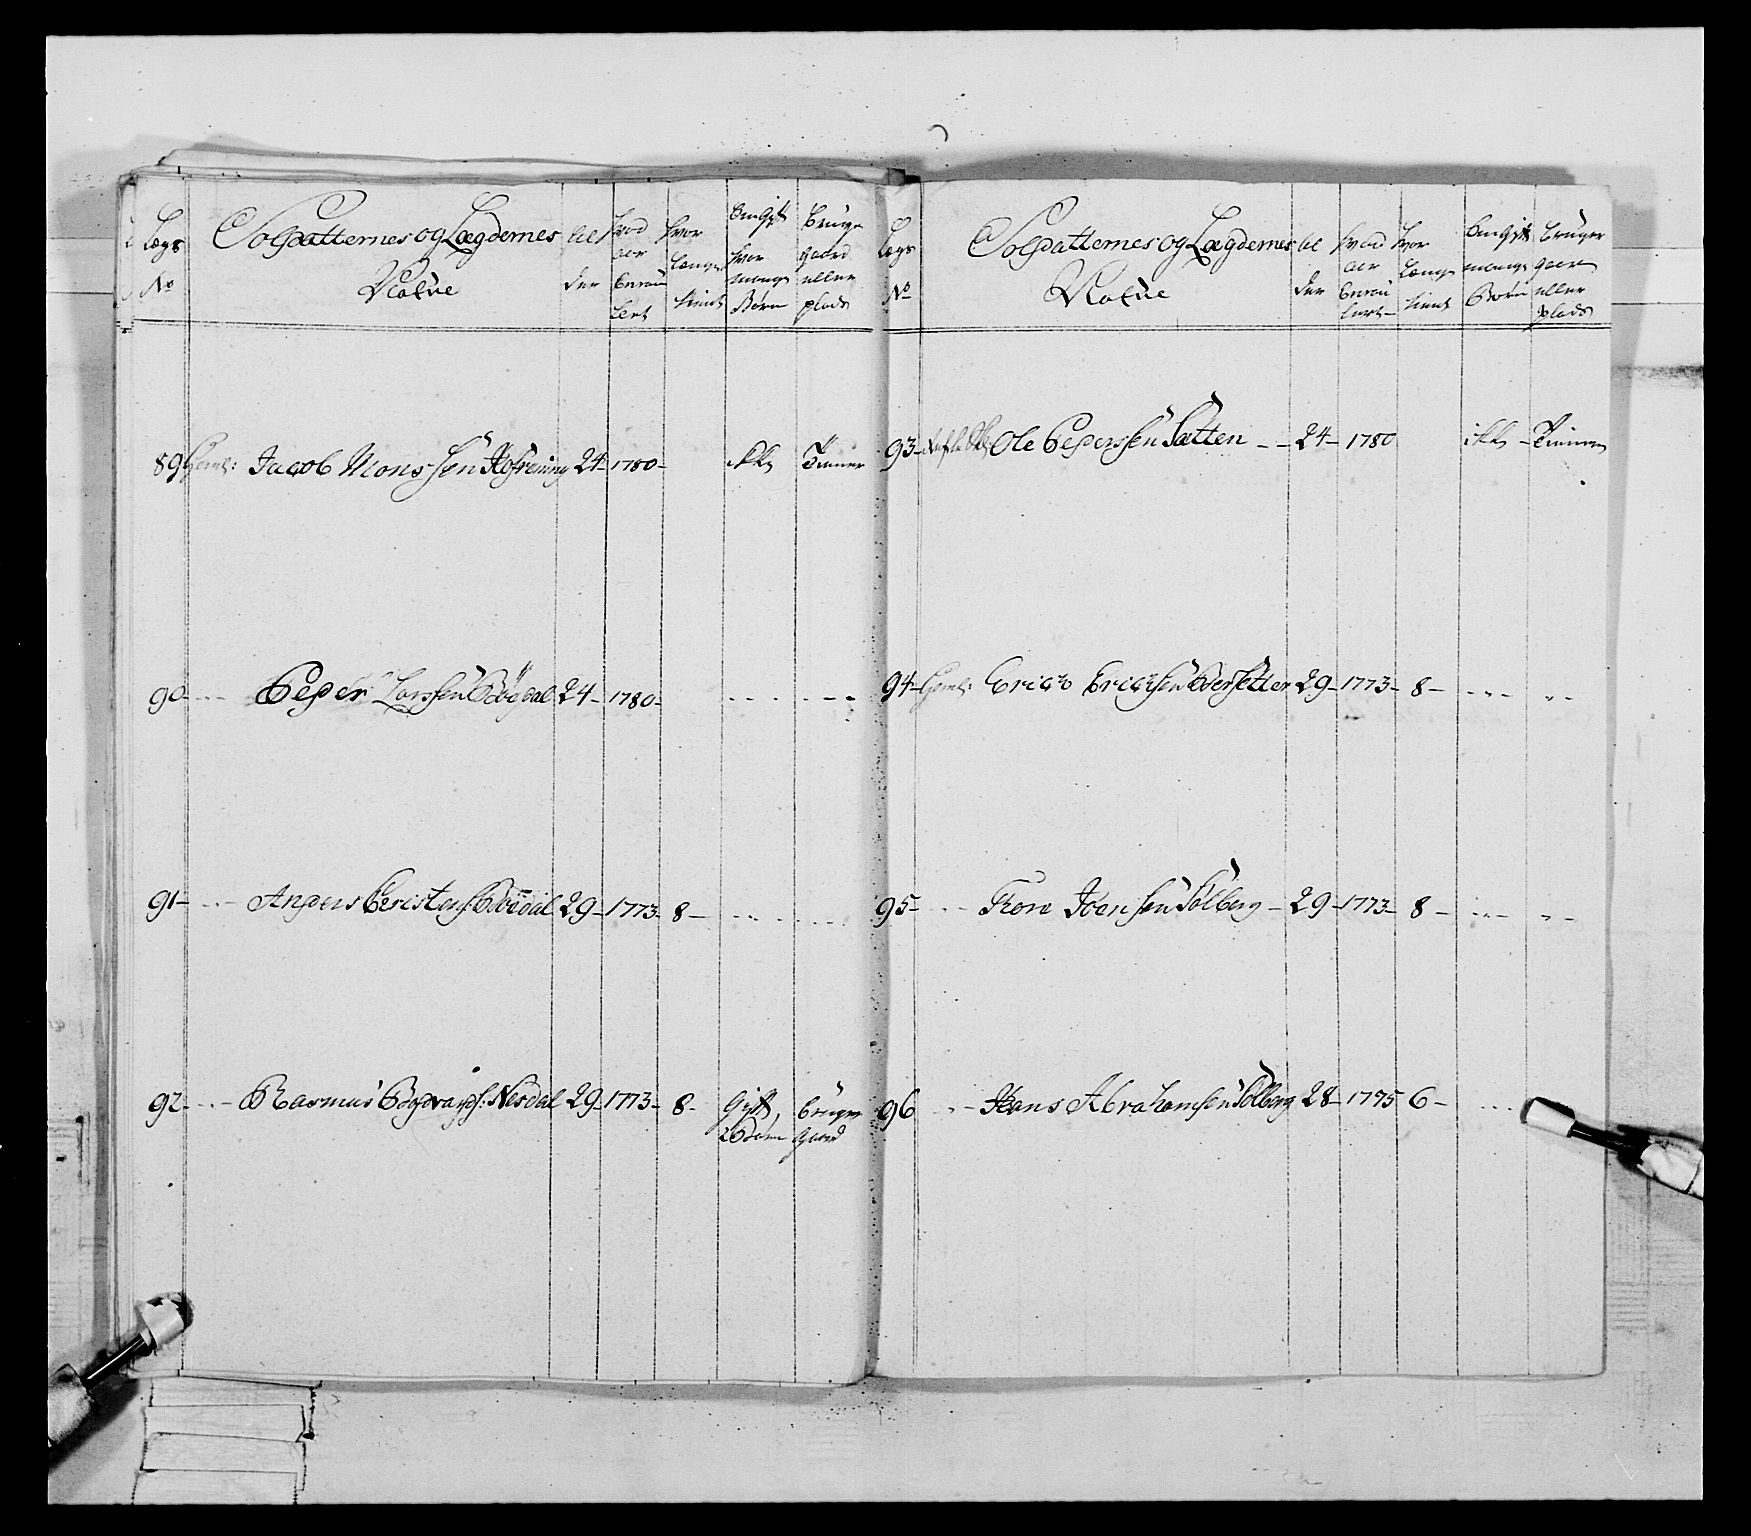 Lægs No
Soldatternes og Lægdernes Nafne
Al der
Hvad aar Enroulert
Hvor længe tient
Om Gift hvor mange Børn
Bruger gaard eller plads
89 Gem: Jacob Monssen 24 1780 ikke Tiener
90 - - - Peder Larssen Bødal 24 1780 - - - - - -
91 - - - Anders Christens: Bødal 29 1773 8 - - - - - -
92 - - - Rasmus Nesdal 29 1773 8 Gift, Bruger
2 Børn Gaard
Lægs No
Soldatternes og Lægdernes Nafne
Al der
Hvad aar Enroulert
Hvor længe tient
Om Gift mange Børn
Bruger gaard eller plads
93 Ole Pederssen Sætten - - 24 1780 ikke Tiener
94 Gem: Erich Erichsen 29 1773 8 - - - - -
95 - - - Tore Joensen Solberg 29 1773 8 - - - - -
96 - - Hans Abrahamsen Solberg 28 1775 6 - - -